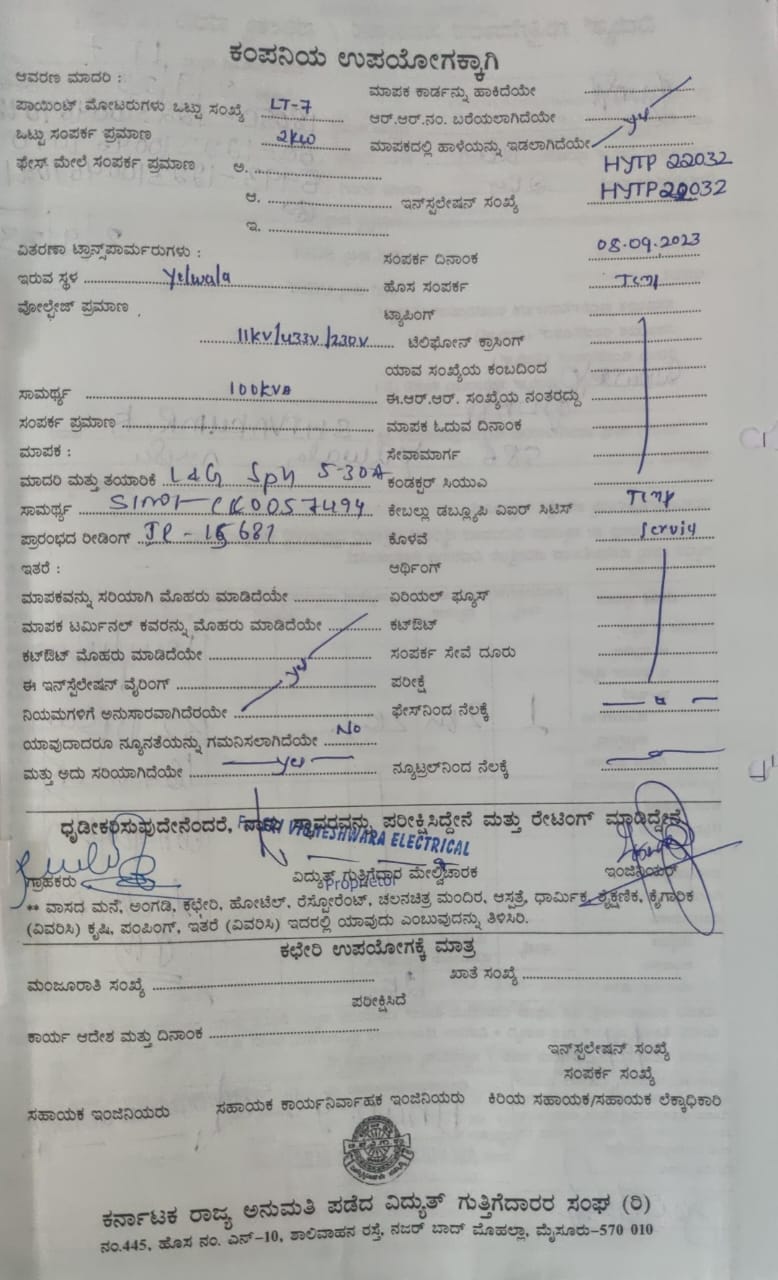 ಕಂಪನಿಯ ಉಪಯೋಗಕ್ಕಾಗಿ
ಆವರಣ ಮಾದರಿ :
ಮಾಪಕ ಕಾರ್ಡನ್ನು ಹಾಕಿದೆಯೇ
ಪಾಯಿಂಟ್ ಮೋಟರುಗಳು ಒಟ್ಟು ಸಂಖ್ಯೆ LT-7
ಆರ್.ಆರ್.ನಂ. ಬರೆಯಲಾಗಿದೆಯೇ
ಒಟ್ಟು ಸಂಪರ್ಕ ಪ್ರಮಾಣ 2KW
ಮಾಪಕದಲ್ಲಿ ಹಾಳೆಯನ್ನು ಇಡಲಾಗಿದೆಯೇ yes
ಫೇಸ್ ಮೇಲೆ ಸಂಪರ್ಕ ಪ್ರಮಾಣ ಅ.
HYTP 22032
ಆ. ಇನ್‌ಸ್ಪಲೇಷನ್ ಸಂಖ್ಯೆ HYTP 22032
ಇ.
ವಿತರಣಾ ಟ್ರಾನ್ಸ್‌ಪಾರ್ಮರುಗಳು :
ಸಂಪರ್ಕ ದಿನಾಂಕ 08.09.2023
ಇರುವ ಸ್ಥಳ Yelwala
ಹೊಸ ಸಂಪರ್ಕ Temp
ವೋಲ್ಟೇಜ್ ಪ್ರಮಾಣ
ಟ್ಯಾಪಿಂಗ್
11KV/433V/230V
ಟೆಲಿಫೋನ್ ಕ್ರಾಸಿಂಗ್
ಯಾವ ಸಂಖ್ಯೆಯ ಕಂಬದಿಂದ
ಸಾಮರ್ಥ್ಯ 100KVA
ಈ.ಆರ್.ಆರ್. ಸಂಖ್ಯೆಯ ನಂತರದ್ದು
ಸಂಪರ್ಕ ಪ್ರಮಾಣ
ಮಾಪಕ ಓದುವ ದಿನಾಂಕ
ಮಾಪಕ :
ಸೇವಾಮಾರ್ಗ
ಮಾದರಿ ಮತ್ತು ತಯಾರಿಕೆ L&G Sph 5-30A
ಕಂಡಕ್ಟರ್ ಸಿಯುಎ
ಸಾಮರ್ಥ್ಯ
ಕೇಬಲ್ಲು ಡಬ್ಲ್ಯೂಪಿ ವಿಐರ್ ಸಿಟಿಸ್ Temp
ಪ್ರಾರಂಭದ ರೀಡಿಂಗ್
ಕೊಳವೆ
ಇತರೆ :
ಆರ್ಥಿಂಗ್
ಮಾಪಕವನ್ನು ಸರಿಯಾಗಿ ಮೊಹರು ಮಾಡಿದೆಯೇ
ಏರಿಯಲ್ ಫ್ಯೂಸ್
ಮಾಪಕ ಟರ್ಮಿನಲ್ ಕವರನ್ನು ಮೊಹರು ಮಾಡಿದೆಯೇ
ಕಟ್‌ಔಟ್
ಕಟ್‌ಔಟ್ ಮೊಹರು ಮಾಡಿದೆಯೇ
ಸಂಪರ್ಕ ಸೇವೆ ದೂರು
ಈ ಇನ್‌ಸ್ಪೆಲೇಷನ್ ವೈರಿಂಗ್ yes
ಪರೀಕ್ಷೆ
ನಿಯಮಗಳಿಗೆ ಅನುಸಾರವಾಗಿದೆರಯೇ
ಫೇಸ್‌ನಿಂದ ನೆಲಕ್ಕೆ
ಯಾವುದಾದರೂ ನ್ಯೂನತೆಯನ್ನು ಗಮನಿಸಲಾಗಿದೆಯೇ No
ಮತ್ತು ಅದು ಸರಿಯಾಗಿದೆಯೇ yes
ನ್ಯೂಟ್ರಲ್‌ನಿಂದ ನೆಲಕ್ಕೆ
ಧೃಡೀಕರಿಸುವುದೇನೆಂದರೆ, ನಾನು ಸ್ಥಾವರವನ್ನು ಪರೀಕ್ಷಿಸಿದ್ದೇನೆ ಮತ್ತು ರೇಟಿಂಗ್ ಮಾಡಿದ್ದೇನೆ
VIGHNESHWARA ELECTRICAL
ಗ್ರಾಹಕರು
ವಿದ್ಯುತ್ ಗುತ್ತಿಗೆದಾರ ಮೇಲ್ವಿಚಾರಕ
ಇಂಜಿನಿಯರ್
Proprietor
** ವಾಸದ ಮನೆ, ಅಂಗಡಿ, ಕಛೇರಿ, ಹೋಟೆಲ್, ರೆಸ್ಟೋರೆಂಟ್, ಚಲನಚಿತ್ರ ಮಂದಿರ, ಆಸ್ಪತ್ರೆ, ಧಾರ್ಮಿಕ, ಶೈಕ್ಷಣಿಕ, ಕೈಗಾರಿಕ
(ವಿವರಿಸಿ) ಕೃಷಿ, ಪಂಪಿಂಗ್, ಇತರೆ (ವಿವರಿಸಿ) ಇದರಲ್ಲಿ ಯಾವುದು ಎಂಬುವುದನ್ನು ತಿಳಿಸಿರಿ.
ಕಛೇರಿ ಉಪಯೋಗಕ್ಕೆ ಮಾತ್ರ
ಮಂಜೂರಾತಿ ಸಂಖ್ಯೆ
ಖಾತೆ ಸಂಖ್ಯೆ
ಪರೀಕ್ಷಿಸಿದೆ
ಕಾರ್ಯ ಆದೇಶ ಮತ್ತು ದಿನಾಂಕ
ಇನ್‌ಸ್ಪಲೇಷನ್ ಸಂಖ್ಯೆ
ಸಂಪರ್ಕ ಸಂಖ್ಯೆ
ಸಹಾಯಕ ಇಂಜಿನಿಯರು
ಸಹಾಯಕ ಕಾರ್ಯನಿರ್ವಾಹಕ ಇಂಜಿನಿಯರು
ಕಿರಿಯ ಸಹಾಯಕ/ಸಹಾಯಕ ಲೆಕ್ಕಾಧಿಕಾರಿ
ಕರ್ನಾಟಕ ರಾಜ್ಯ ಅನುಮತಿ ಪಡೆದ ವಿದ್ಯುತ್ ಗುತ್ತಿಗೆದಾರರ ಸಂಘ (ರಿ)
ನಂ.445, ಹೊಸ ನಂ. ಎನ್-10, ಶಾಲಿವಾಹನ ರಸ್ತೆ, ನಜರ್ ಬಾದ್ ಮೊಹಲ್ಲಾ, ಮೈಸೂರು-570 010